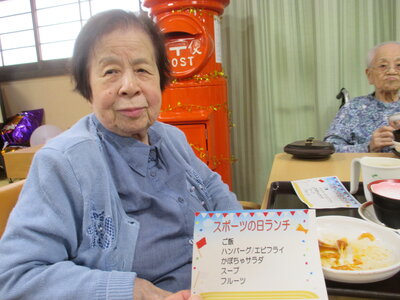 〒
POST
スポーツの日ランチ
ご飯
ハンバーグ/エビフライ
かぼちゃサラダ
スープ
フルーツ